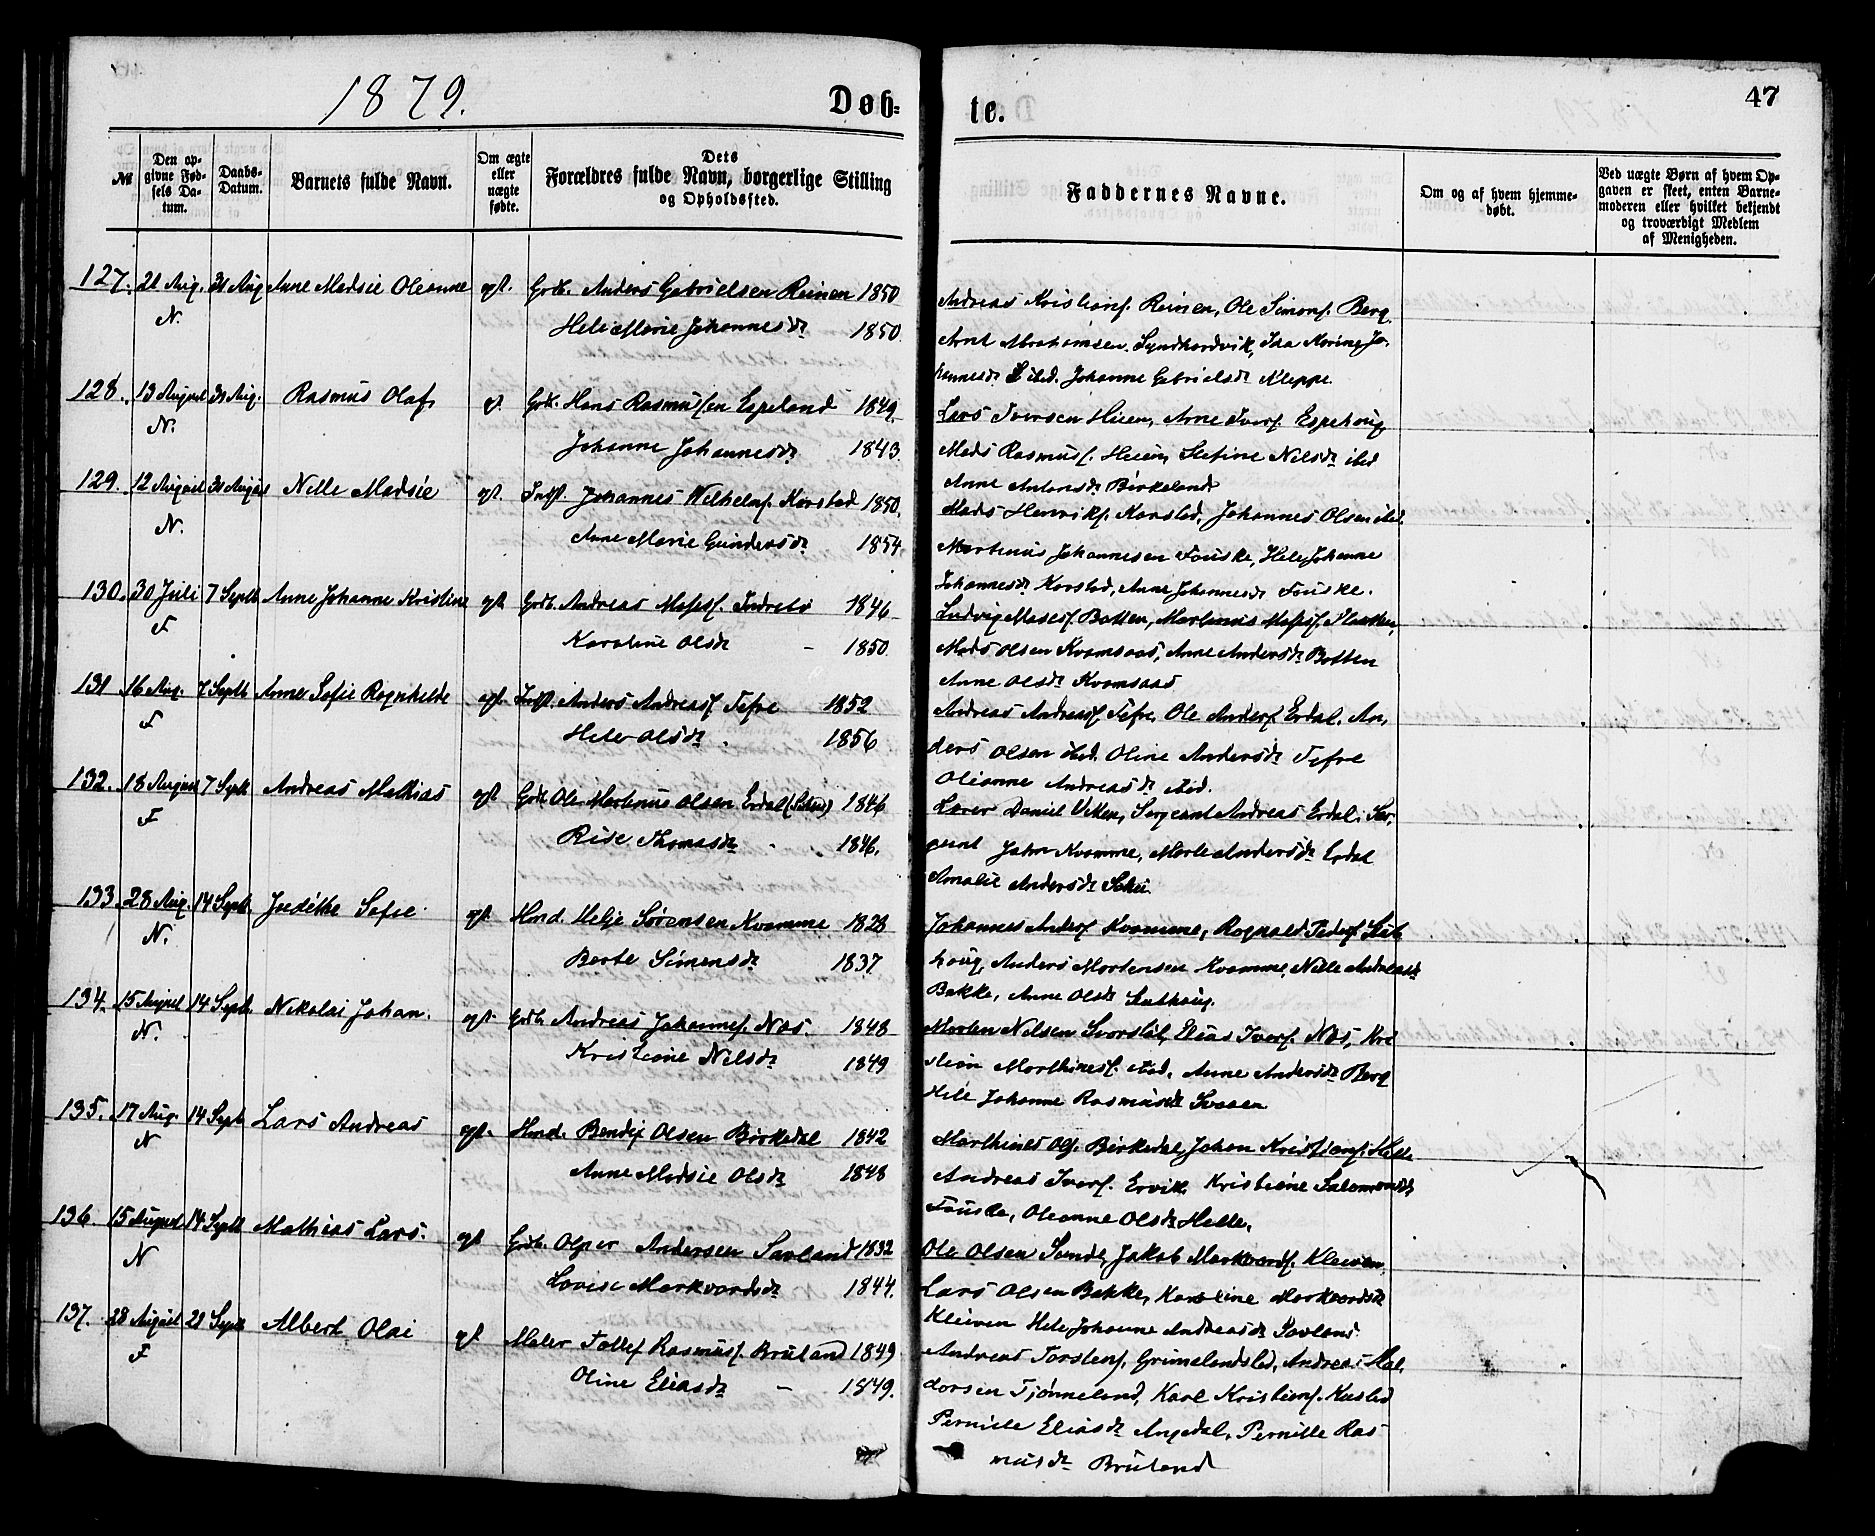 1879.
Døb-
te.
47
№
Den op-
givne Fød-
sels Da-
tum.
Daabs-
Datum.
Barnets fulde Navn.
Om ægte
eller
uægte
fødte.
Dets
Forældres fulde Navn, borgerlige Stilling
og Opholdssted.
Faddernes Navne.
Om og af hvem hjemme-
døbt.
Ved uægte Børn af hvem Op-
gaven er skeet, enten Barne-
moderen eller hvilket bekjendt
og troværdigt Medlem
af Menigheden.
127. 21 Aug. 31 Aug Anne Madsie Oleanne egt. Grdb. Anders Gabrielsen Reinen 1850
N. Hele Marie Johannesdr 1850.
Andreas Kristians. Reinen, Ole Simons. Berg
Arnt Abrahamsen Syndhordvik, Ida Karine Jo-
hannesdr ibid. Johanne Gabrielsdr Kleppe.
128. 13 August 31 Aug. Rasmus Olaf, gt. Grdb. Hans Rasmussen Espeland 1849.
N. Johanne Johannesdr 1843.
Lars Iversen Hieen, Arne Ivers. Espehoug
Mads Rasmuss. Hieen, Nilsdr ibid
Anne Antonsdr Birkeland.
129. 12 August 31 August Nille Madsie egt. Indst. Johannes Wilhelms. Korstad 1850.
N. Anne Marie Gundersdr 1854.
Mads Henriks. Korstad, Johannes Olsen ibid.
Martinus Johannesen Fouske, Hele Johanne
Johannesdr Korstad, Anne Johannesdr Fouske.
130. 30 Juli 7 Septb Anne Johanne Kristine egt. Grdb. Andreas Moses. Indrebø 1846
F Karoline Olsdr - 1850.
Ludvig Moses. Botten, Martinus Moses.
Mads Olsen Kvamsaas, Anne Andersdr Botten
Anne Olsdr Kvamsaas
131 16 Aug. 7 Septb Anne Sofie Ragnhilde egt. Indst. Anders Andreass. Tefre 1852
F Hele Olsdr 1856
Andreas Andreass. Tefre, Ole Anders. Erdal, An-
ders Olsen ibid. Oline Andersdr Tefre
Oleanne Andreasdr ibid.
132. 18 August 7 Septb Andreas Mathias egt Grdb. Ole Martinus Olsen Erdal 1846
F Rise Thomasdr 1846.
Lærer Daniel Viken, Sergeant Andreas Erdal. Ser-
geant John Kvamme, Marte Andersdr Erdal
Amalie Andersdr
133. 28 Aug. 14 Septb. Judithe Sofie egt. Hmd. Helje Sørensen Kvamme 1828
N. Berte Simensdr 1837
Johannes Anders. Kvamme, Rognald Peders.
houg, Anders Mortensen Kvamme, Nille Andreasdr
Bakke, Anne Olsdr
134. 15 August 14 Septb. Nikolai Johan. egt. Grdb. Andreas Johannes. Næs. 1848
N. Kristine Nilsdr 1849
Morten Nilsen Svorstøl, Elias Ivers. Næs, Kri-
stian Marthines. ibid, Anne Andersdr Berg
Hele Johanne Rasmusdr Svaaen
135. 17 Aug. 14 Septb Lars Andreas egt. Hmd. Bendix Olsen Birkedal 1842
N Anne Madsie Olsdr 1848
Marthines Ols. Birkedal, Johan Kristians. Helle
Andreas Ivers. Ervik, Kristine Salamonsdr
Fouske, Oleanne Olsdr Helle.
136. 15 August 14 Septb Mathias Lars. egt Grdb. Andersen Savland 1832
N Lovise Markvardsdr 1844.
Ole Olsen Sande, Jakob Markvards. Kleiven,
Lars Olsen Bakke, Karoline Markvardsdr
Kleiven Hele Johanne Andreasdr Savland
137. 28 August 21 Septb Albert Olai gt Maler Tollef Rasmuss. Bruland 1849
F Oline Eliasdr - 1849.
Andreas Torstens. Grimelandslid, Andreas Hal-
dorsen Tjønneland, Karl Kristians. Kusled
Pernille Eliasdr Angedal, Pernille Ras-
musdr Bruland